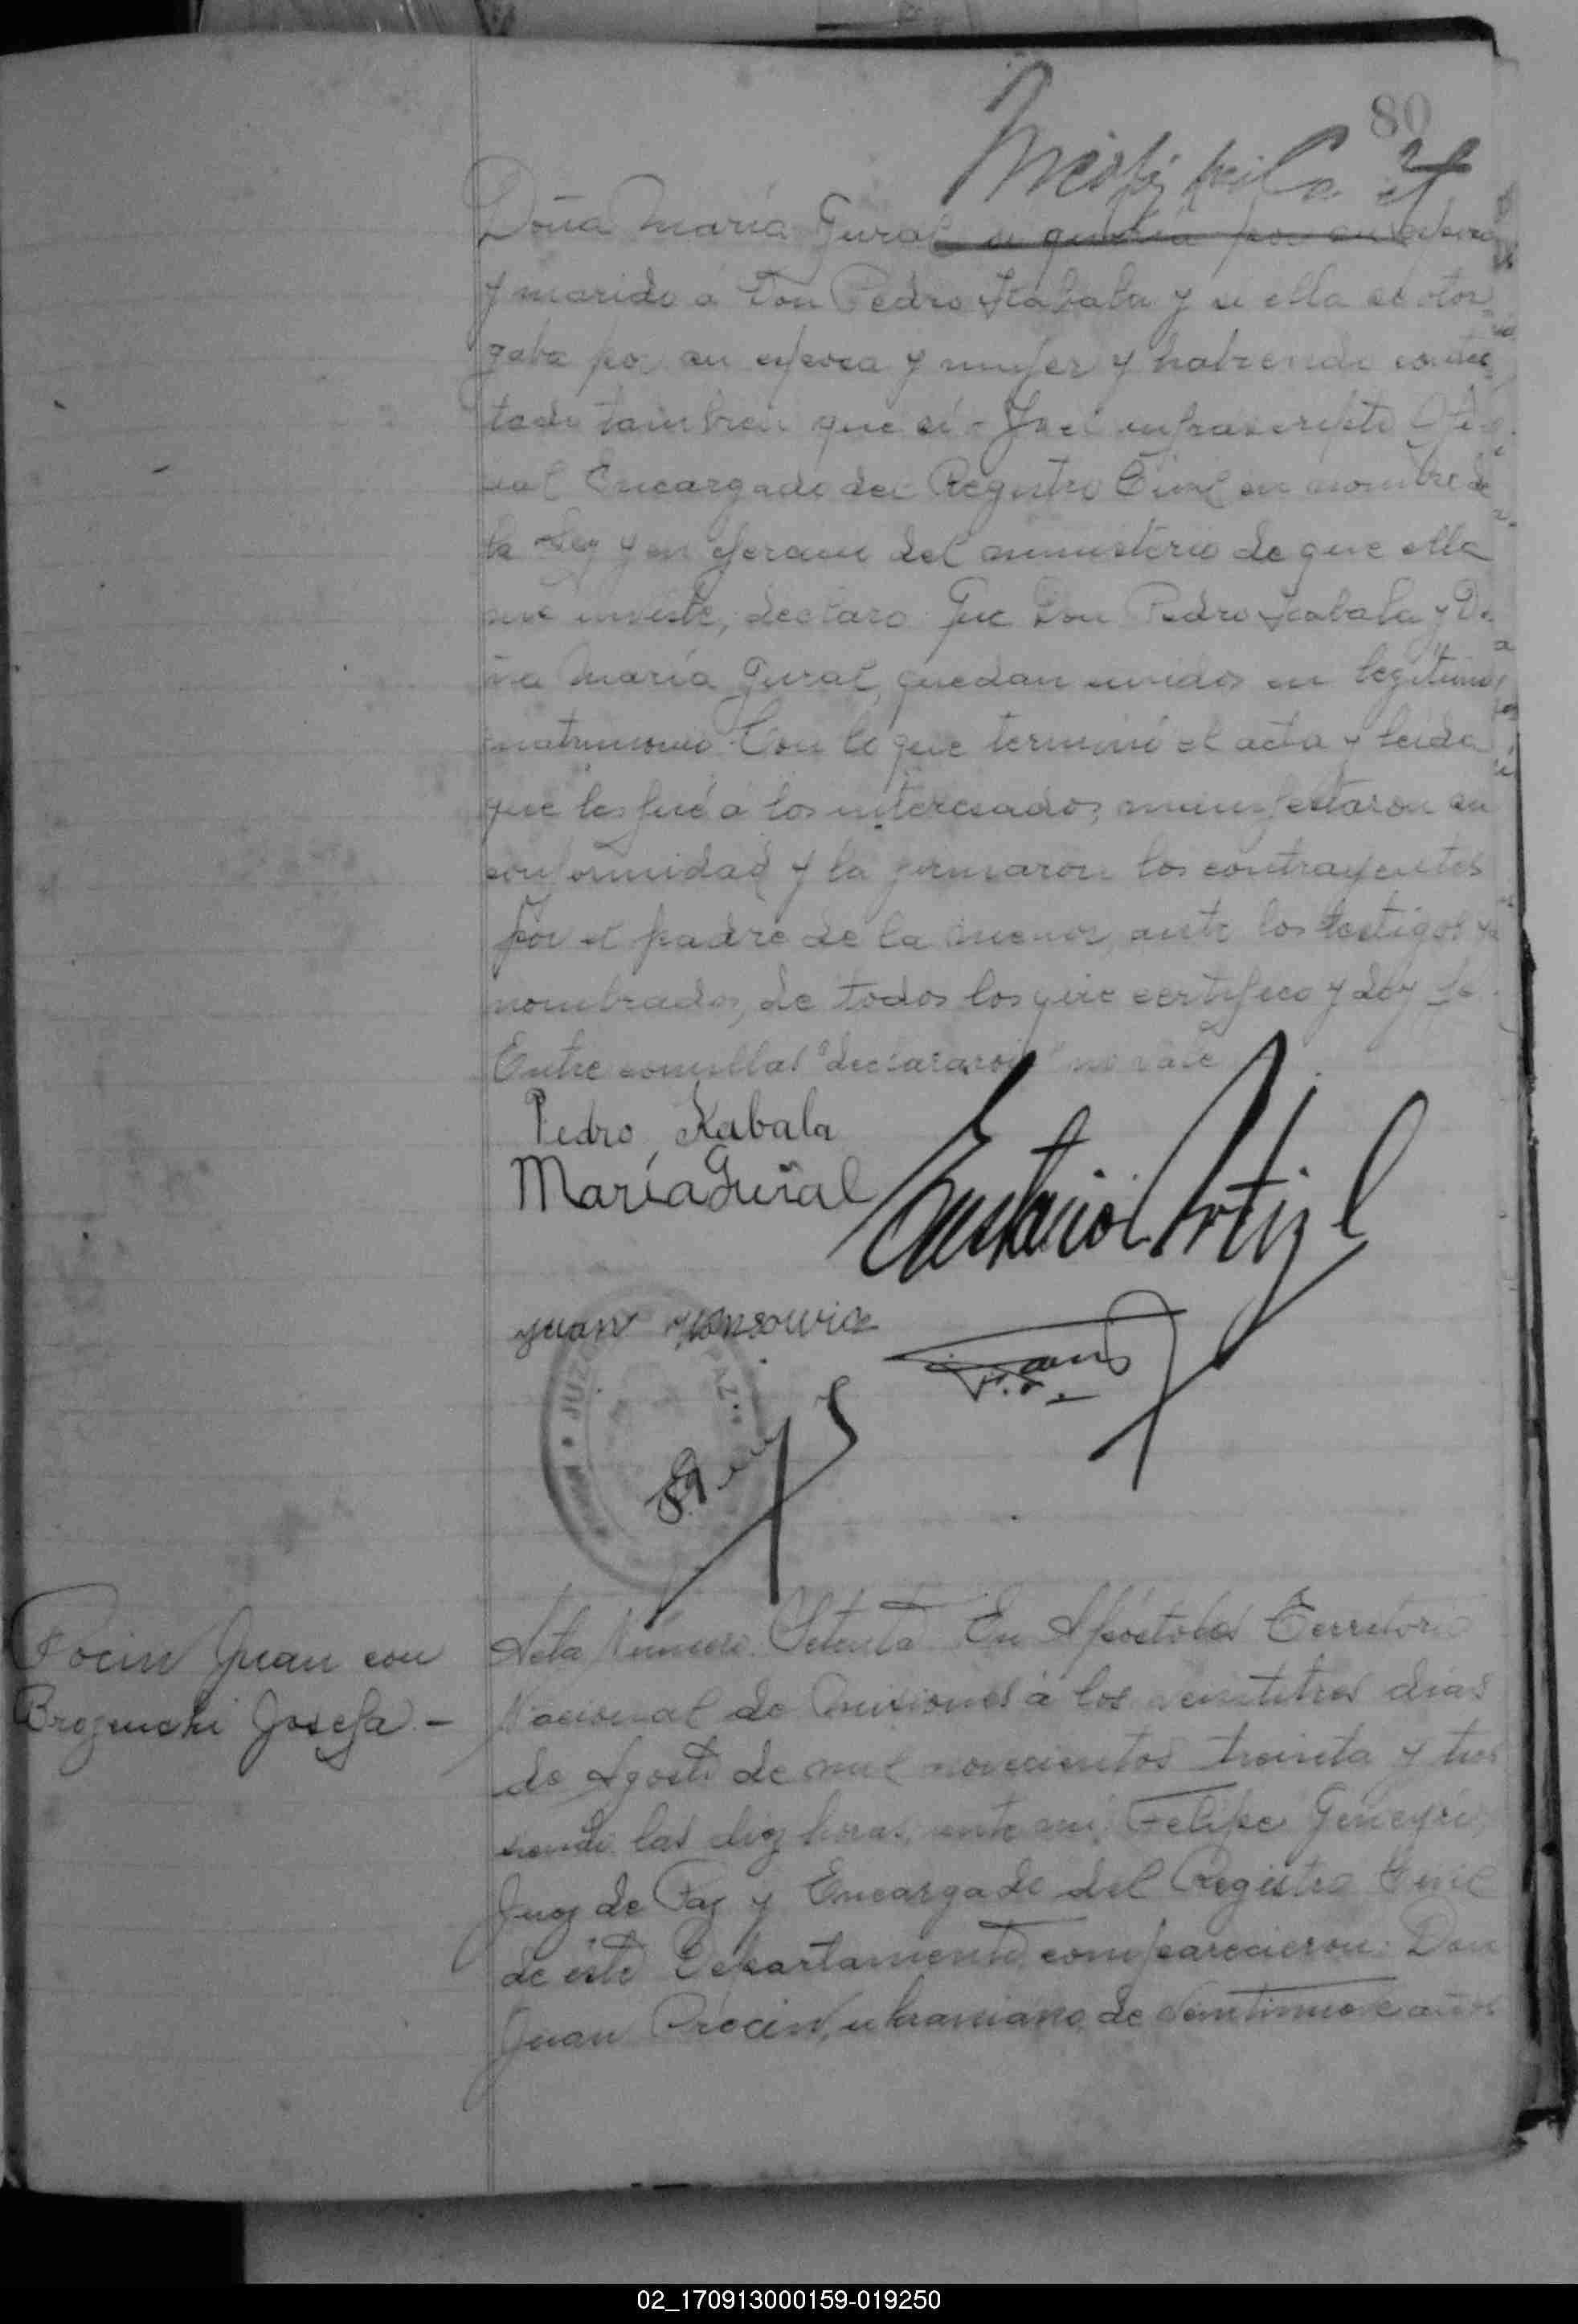 80
Doña María Gural si quería por su esposo
y marido á Don Pedro Skabala y si ella se otor
gaba por su esposa y mujer y habiendo contes
tado también que sí - Yo el infrascripto Ofi
cial Encargado del Registro Civil en nombre de
la Ley y en ejercicio del ministerio de que ella
me inviste, declaro: Que Don Pedro Skabala y Do
ña María Gural, quedan unidos en legítimo
matrimonio. Con lo que terminó el acta y leida
que les fué á los interesados, manifestaron su
conformidad y la firmaron los contrayentes
por el padre de la menor, ante los testigos ya
nombrados, de todos los que certifico y doy fe.
Entre comillas "declararon" no vale
Pedro Skabala
María Gural
Juan
JUZ PAZ
Pocin Juan con
Brozenski Josefa.-
Acta Número Setenta En Apóstoles Territorio
Nacional de Misiones á los veintitres dias
de Agosto de mil novecientos treinta y tres
siendo las diez horas, ante mí, Felipe
Juez de Paz y Encargado del Registro Civil
de éste Departamento, comparecieron: Don
Juan Procin, ukraniano, de veintinueve años
02_170913000159-019250